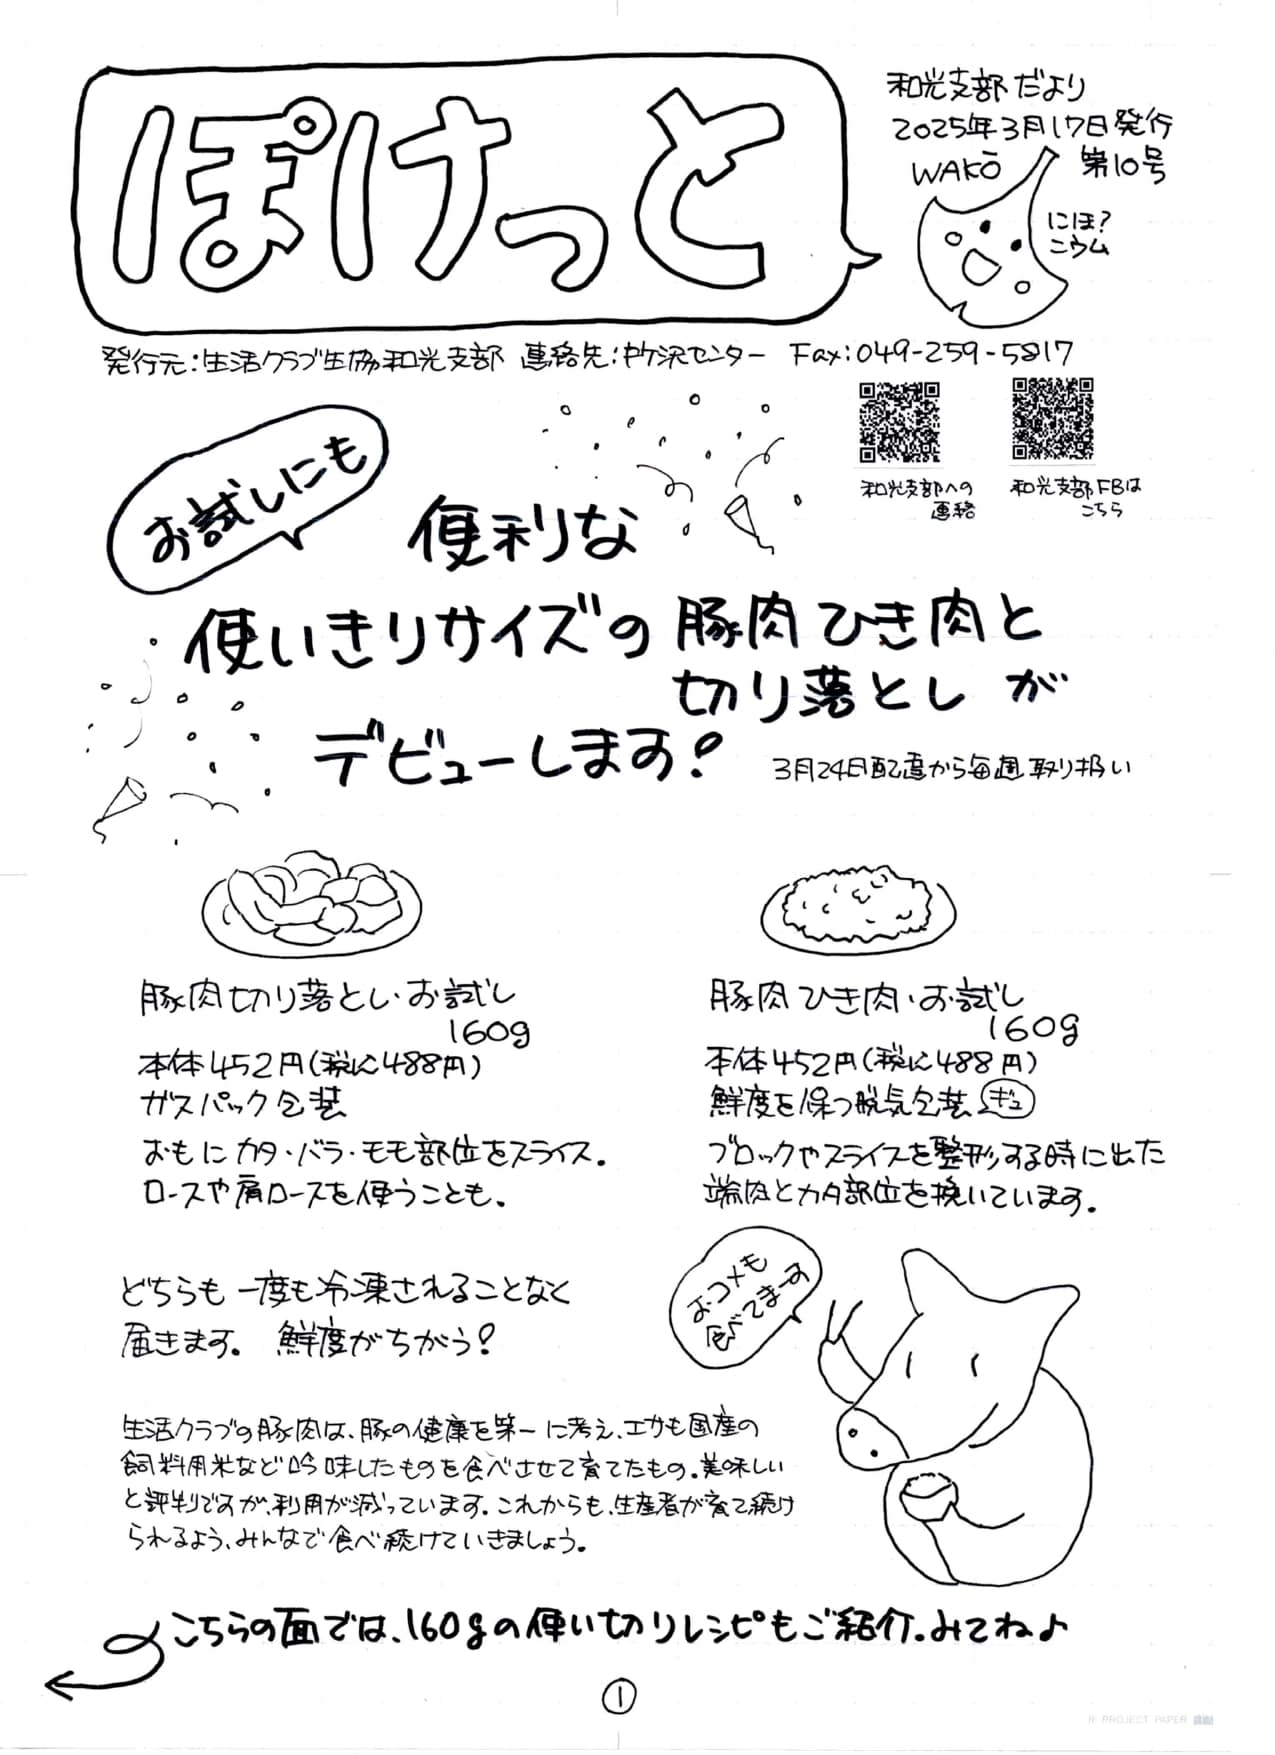 ぽけっと
和光支部だより
2025年3月17日発行
WAKŌ 第10号
にほ?
ニウム
発行元:生活クラブ生協和光支部 連絡先:中ケ沢センター Fax:049-259-5817
和光支部への
連絡
和光支部FBは
こちら
お試しにも
便利な
使いきりサイズの豚肉ひき肉と
切り落としが
デビューします!
3月24日配達から毎週取り扱い
豚肉切り落とし・お試し
160g
本体452円(税込488円)
ガスパック包装
おもにカタ・バラ・モモ部位をスライス。
ロースや肩ロースを使うことも。
豚肉ひき肉・お試し
160g
本体452円(税込488円)
鮮度を保つ脱気包装 ギュ
ブロックやスライスを整形する時に出た
端肉とカタ部位を挽いています。
どちらも一度も冷凍されることなく
届きます。 鮮度がちがう!
おコメも
食べてまーす
生活クラブの豚肉は、豚の健康を第一に考え、エサも国産の
飼料用米など吟味したものを食べさせて育てたもの。美味しい
と評判ですが、利用が減っています。これからも、生産者が育て続け
られるよう、みんなで食べ続けていきましょう。
こちらの面では、160gの使い切りレシピもご紹介。みてね♪
1
R PROJECT PAPER